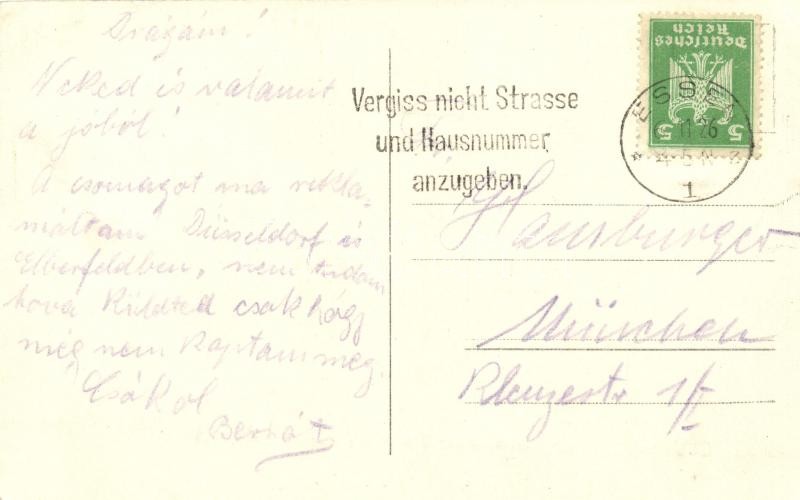 Drágám!
Neked is valamit
a jóból!
A csomagot ma rekla-
máltam Düsseldorf és
Elberfeldben, nem tudom
hová küldted csak hogy
még nem kaptam meg.
Csókol
Bernát
Vergiss nicht Strasse
und Hausnummer
anzugeben.
Deutsches
Reich
5 5
ESSEN
11 26
1
Hamburger
München
Klenzestr 1/I